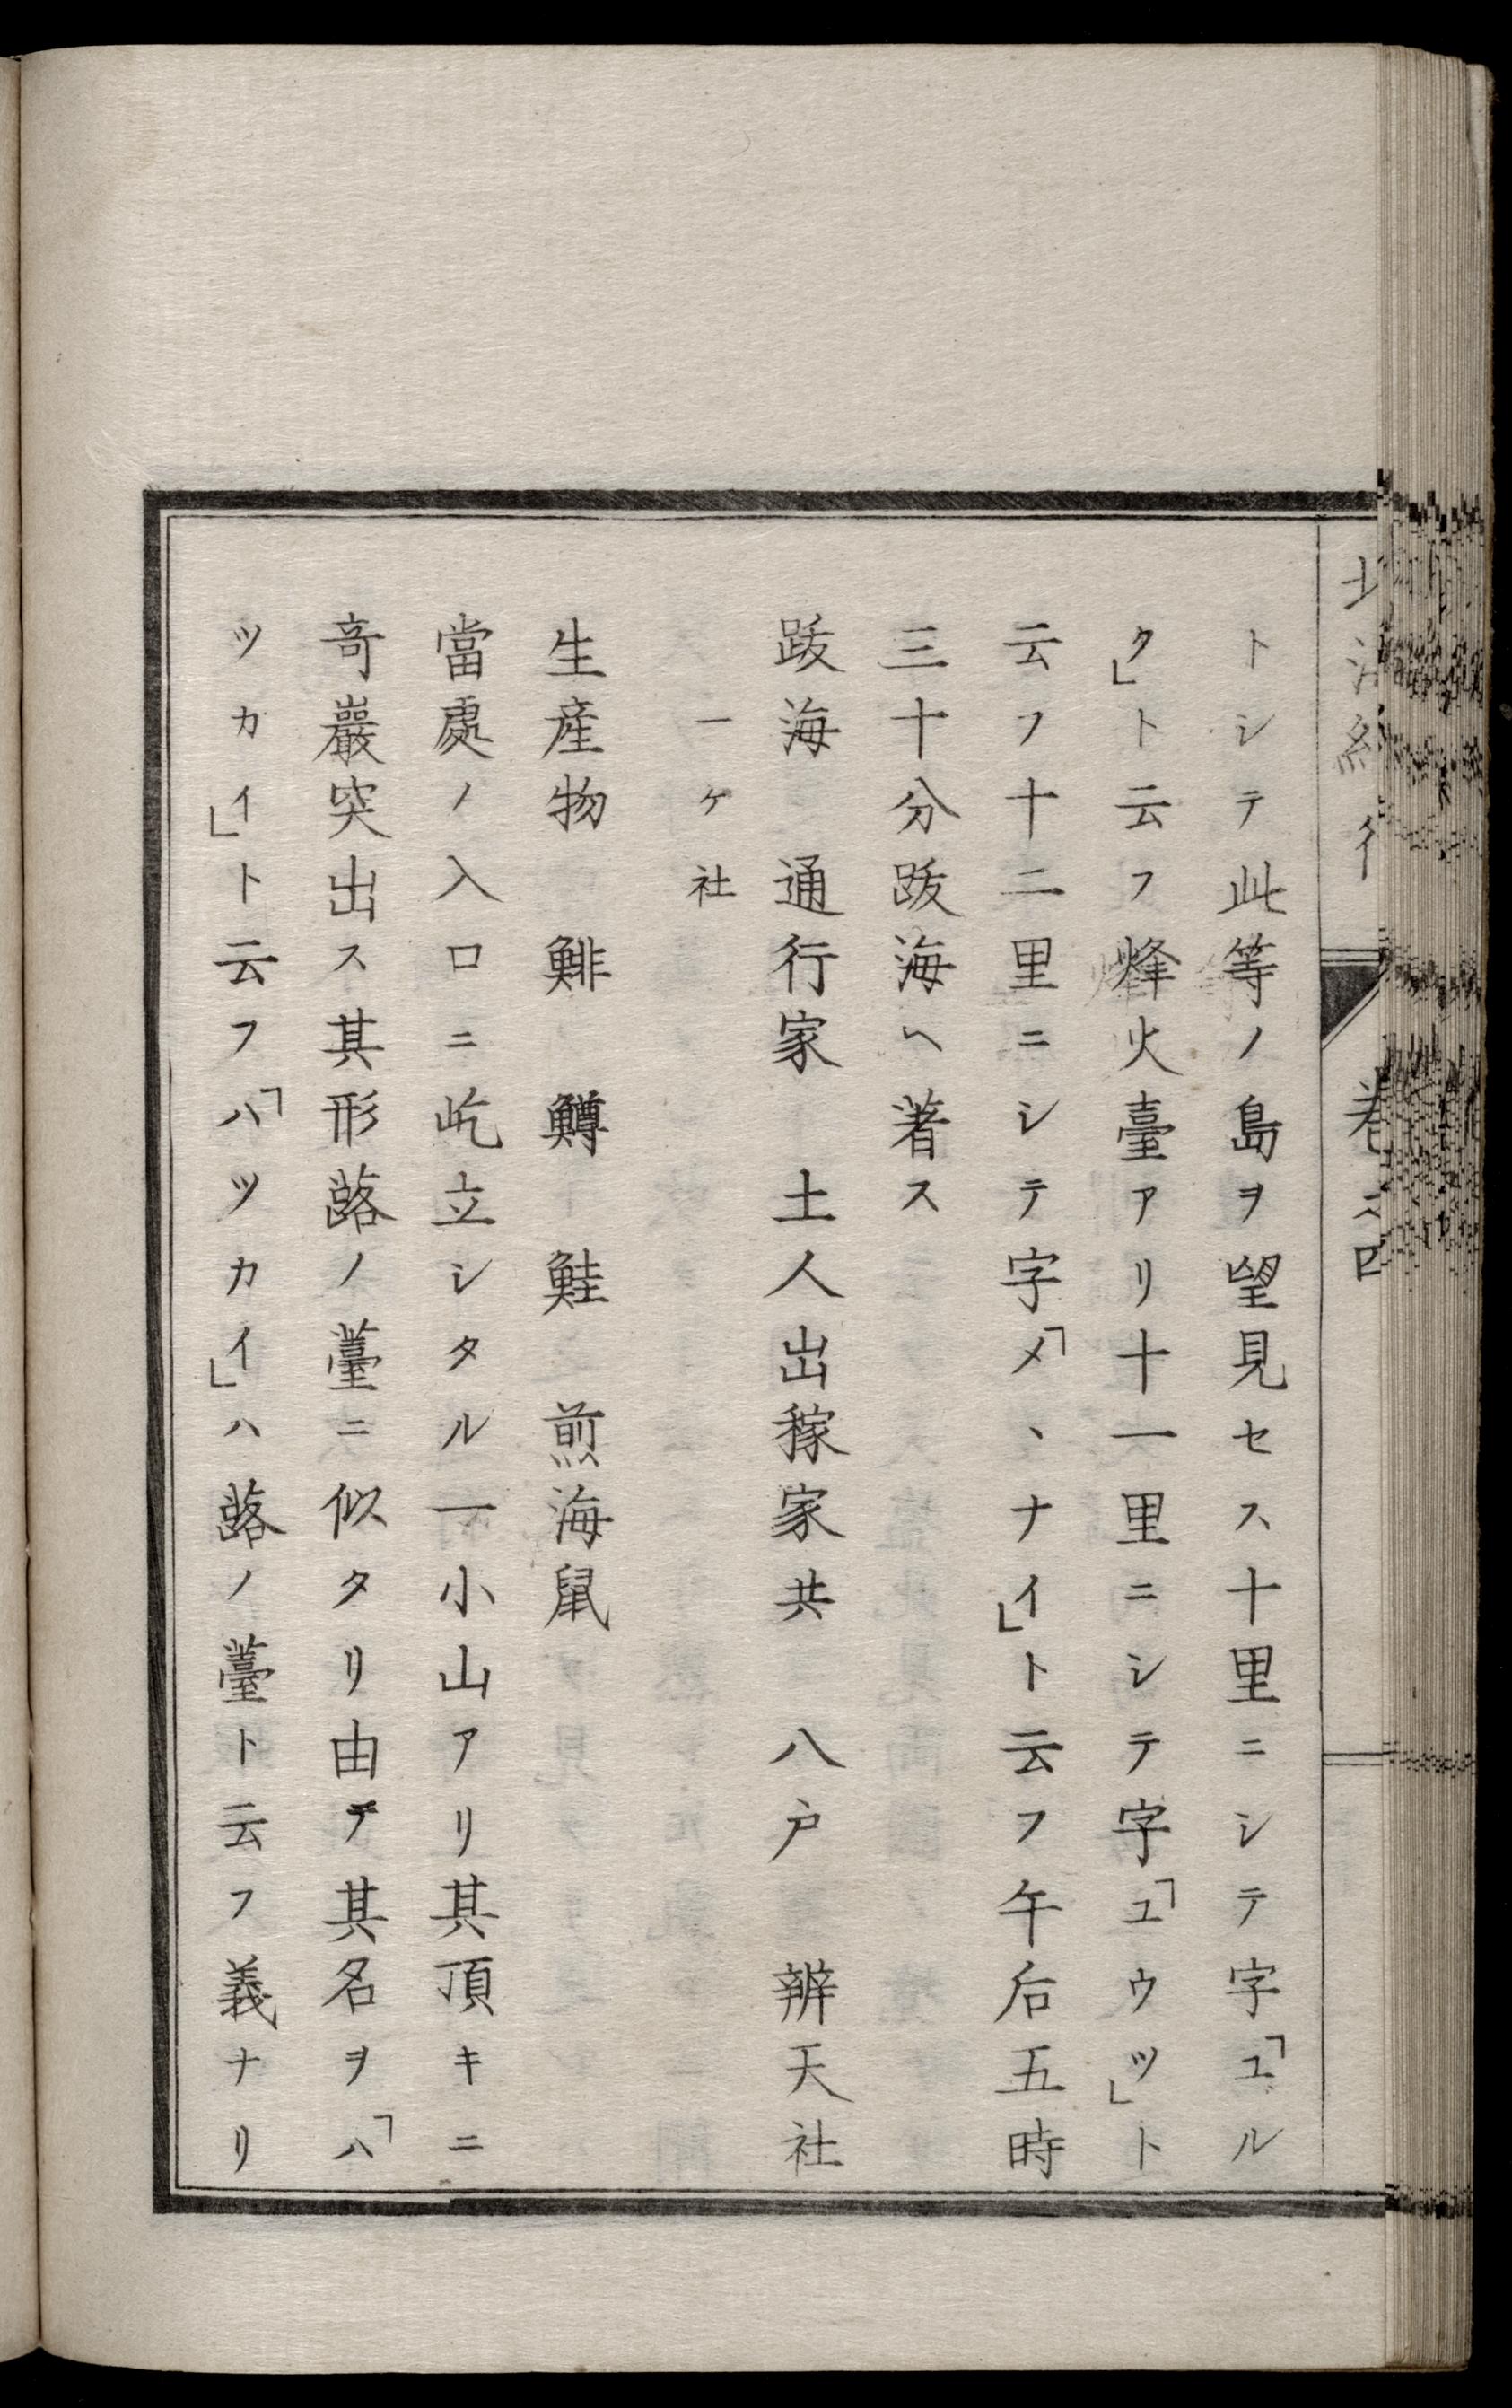 トシテ此等ノ島ヲ望見セス十里ニシテ字「ユル
ク」ト云フ烽火臺アリ十一里ニシテ字「ユウツ」ト
云フ十二里ニシテ字「メヽナイ」ト云フ午后五時
三十分跋海ヘ著ス
跋海　通行家　土人出稼家共　八戸　辨天社
一ケ社
生産物　鯡　鱒　鮭　煎海鼠
當處ノ入口ニ屹立シタル一小山アリ其頂キニ
奇巖突出ス其形蕗ノ薹ニ似タリ由テ其名ヲ「ハ
ツカイ」ト云フ「ハツカイ」ハ蕗ノ薹ト云フ義ナリ
巻之四